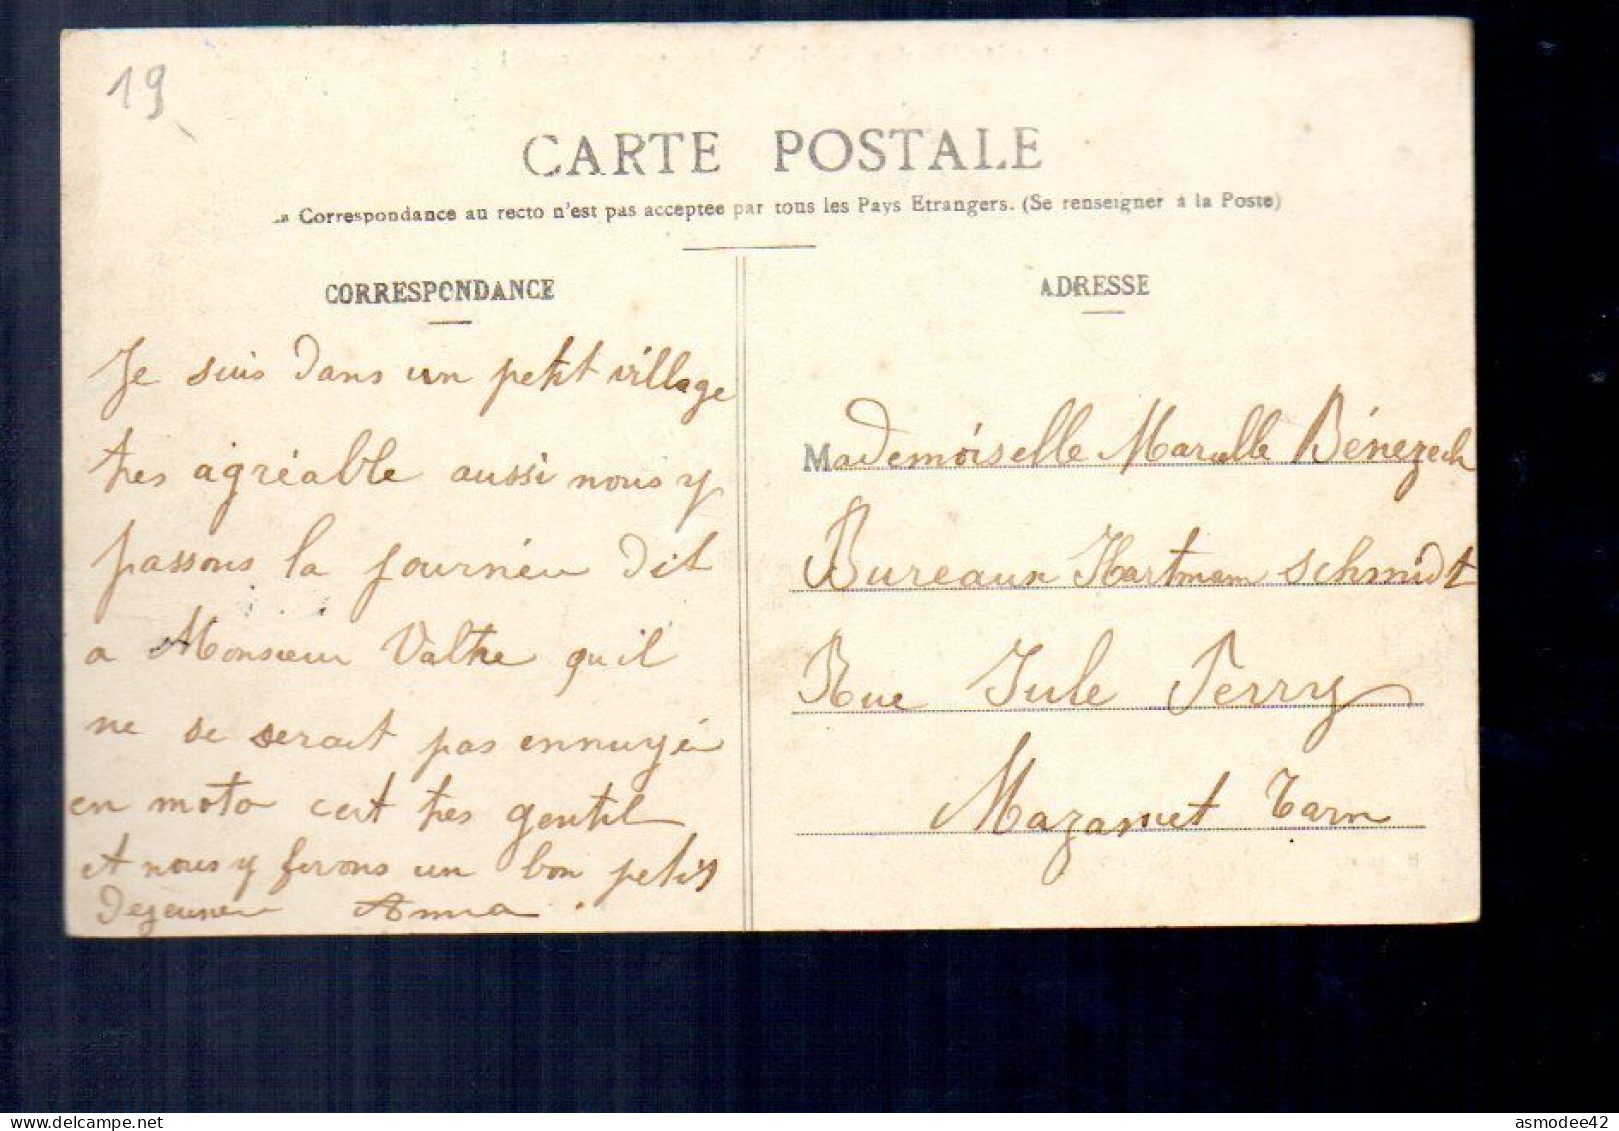 19
CARTE POSTALE
Correspondance au recto n'est pas acceptée par tous les Pays Etrangers. (Se renseigner à la Poste)
CORRESPONDANCE
Je suis dans un petit village
tres agréable aussi nous y
passons la journéee dit
a Monsieur Valtre qu'il
ne se serait pas ennuyé
en moto cest tres gentil
et nous y ferons un bon petit
dejeuner Anna.
ADRESSE
Mademoiselle Marcelle Bénezech
Bureaux Hartmann Schmidt
Rue Jule Ferry
Mazamet Tarn
asmodee42